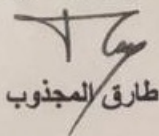 طارق المجذوب